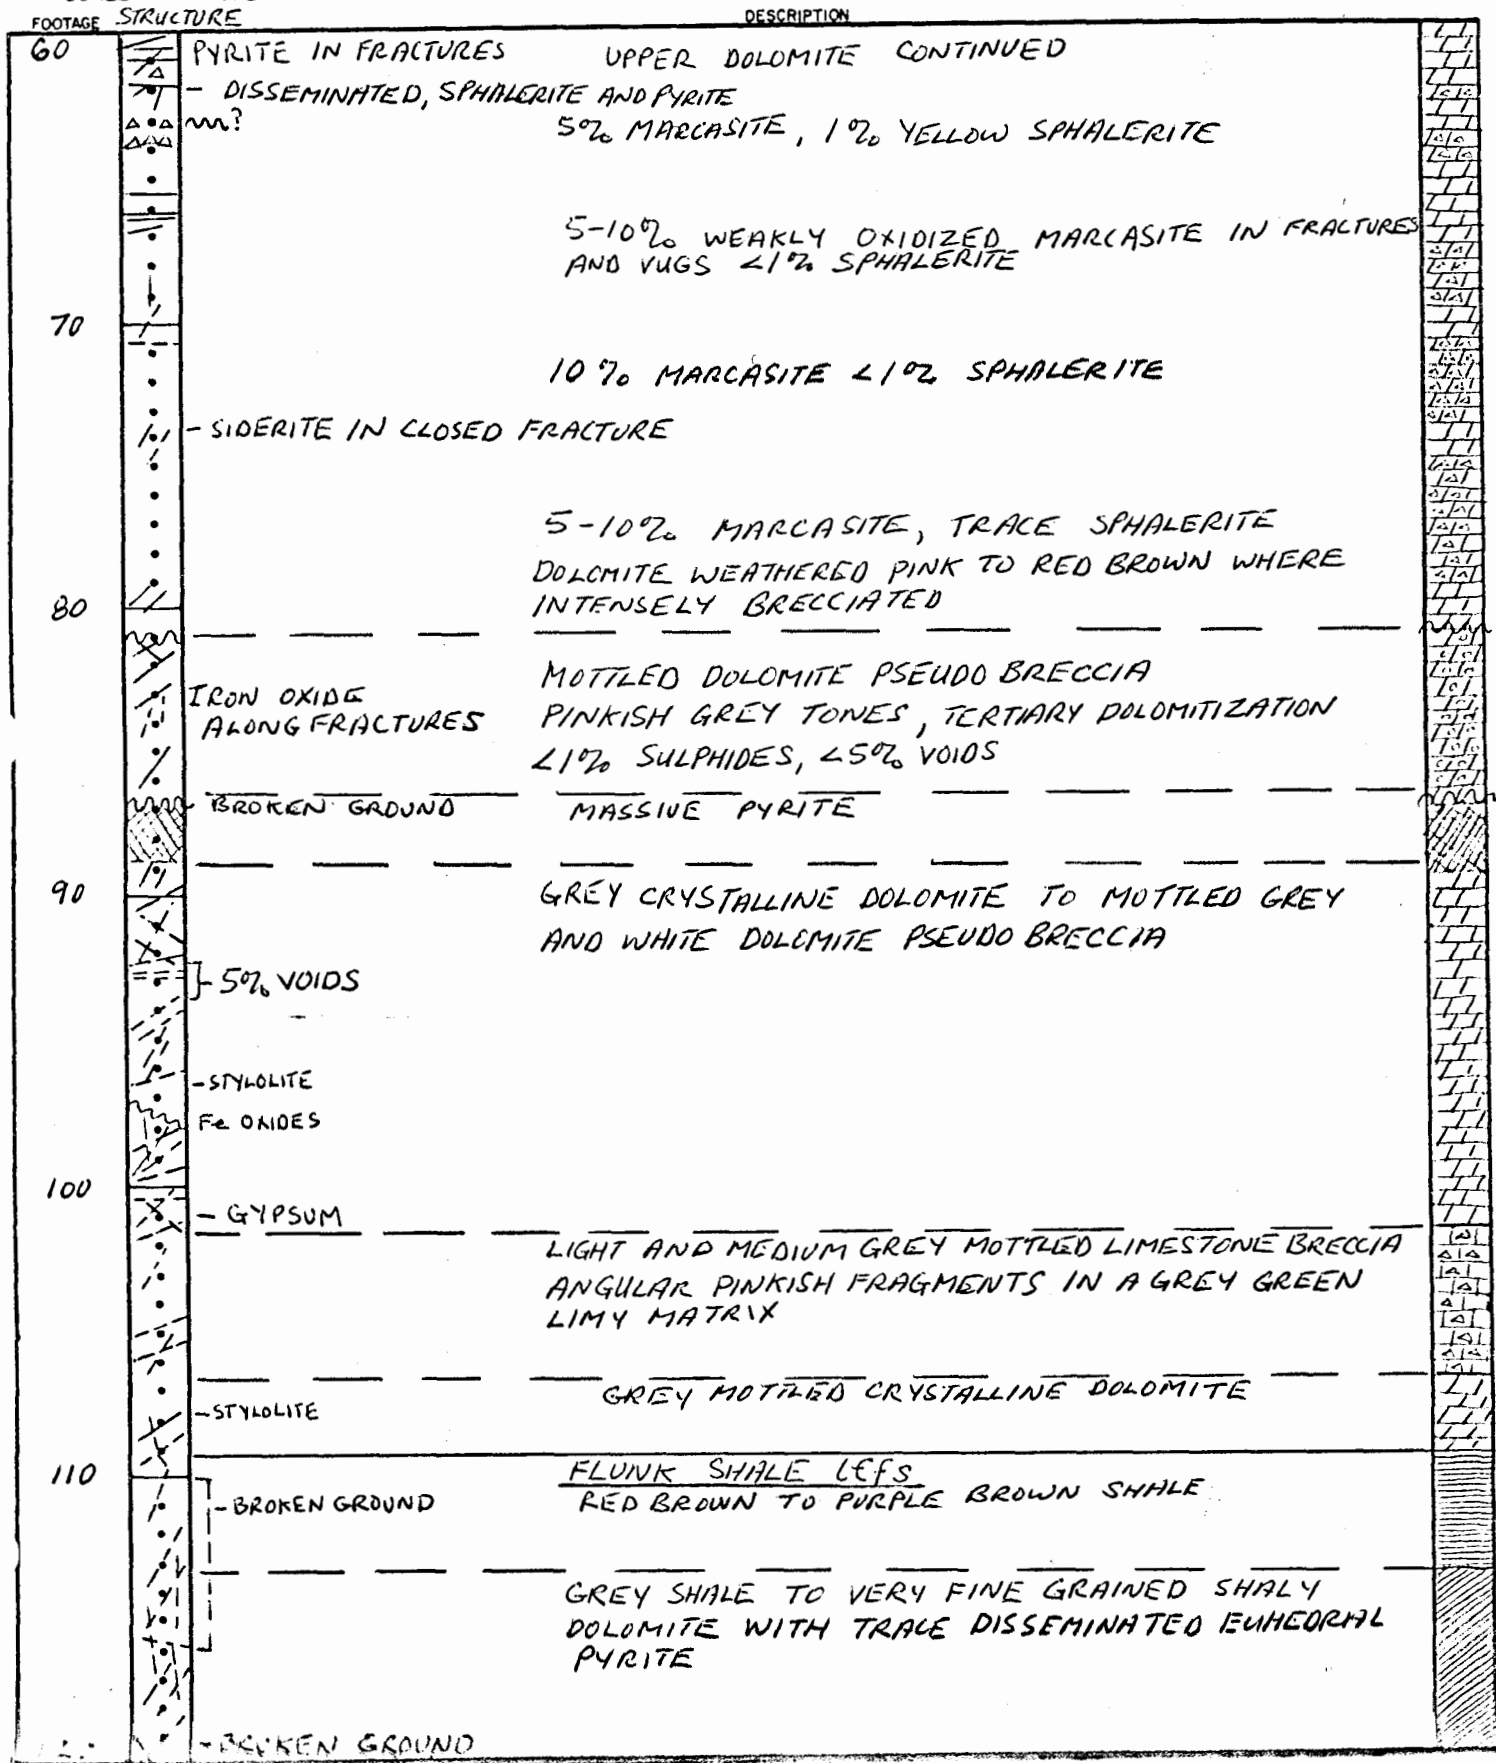 FOOTAGE STRUCTURE DESCRIPTION
60 PYRITE IN FRACTURES UPPER DOLOMITE CONTINUED
- DISSEMINATED, SPHALERITE AND PYRITE
?
5% MARCASITE, 1% YELLOW SPHALERITE
5-10% WEAKLY OXIDIZED MARCASITE IN FRACTURES
AND VUGS <1% SPHALERITE
70
10% MARCASITE <1% SPHALERITE
- SIDERITE IN CLOSED FRACTURE
5-10% MARCASITE, TRACE SPHALERITE
DOLOMITE WEATHERED PINK TO RED BROWN WHERE
80 INTENSELY BRECCIATED
MOTTLED DOLOMITE PSEUDO BRECCIA
IRON OXIDE
ALONG FRACTURES PINKISH GREY TONES, TERTIARY DOLOMITIZATION
<1% SULPHIDES, <5% VOIDS
- BROKEN GROUND MASSIVE PYRITE
90 GREY CRYSTALLINE DOLOMITE TO MOTTLED GREY
AND WHITE DOLOMITE PSEUDO BRECCIA
- 5% VOIDS
- STYLOLITE
Fe OXIDES
100
- GYPSUM
LIGHT AND MEDIUM GREY MOTTLED LIMESTONE BRECCIA
ANGULAR PINKISH FRAGMENTS IN A GREY GREEN
LIMY MATRIX
GREY MOTTLED CRYSTALLINE DOLOMITE
- STYLOLITE
110 FLUNK SHALE
- BROKEN GROUND RED BROWN TO PURPLE BROWN SHALE
GREY SHALE TO VERY FINE GRAINED SHALY
DOLOMITE WITH TRACE DISSEMINATED EUHEDRAL
PYRITE
- BROKEN GROUND